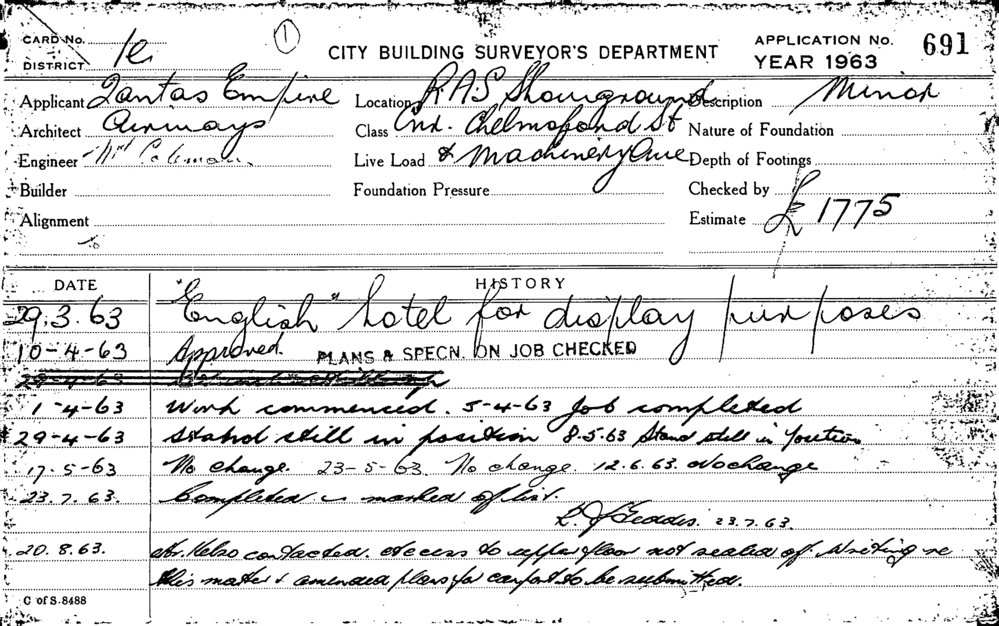 CARD No.
DISTRICT 1e
1
CITY BUILDING SURVEYOR'S DEPARTMENT
APPLICATION No. 691
YEAR 1963
Applicant Qantas Empire
Location RAS Showground
Description Minor
Architect Airways
Class Cnr. Chelmsford St
Nature of Foundation
Engineer Mr Coleman
Live Load & Machinery Ave
Depth of Footings
Builder
Foundation Pressure
Checked by
Alignment
Estimate £ 1775
DATE HISTORY
29.3.63 "English" hotel for display purposes
10-4-63 Approved. PLANS & SPECN. ON JOB CHECKED
29-4-63
1-4-63 Work commenced. 5-4-63 Job completed
29-4-63 Stand still in position 8.5.63 Stand still in position
17-5-63 No change. 23-5-63. No change. 12.6.63. No change
23.7.63. Completed & marked off list.
23.7.63.
20.8.63. Mr. Kelso contacted. Access to upper floor not sealed off. Writing re
this matter & amended plans for carport to be submitted.
C of S.8488